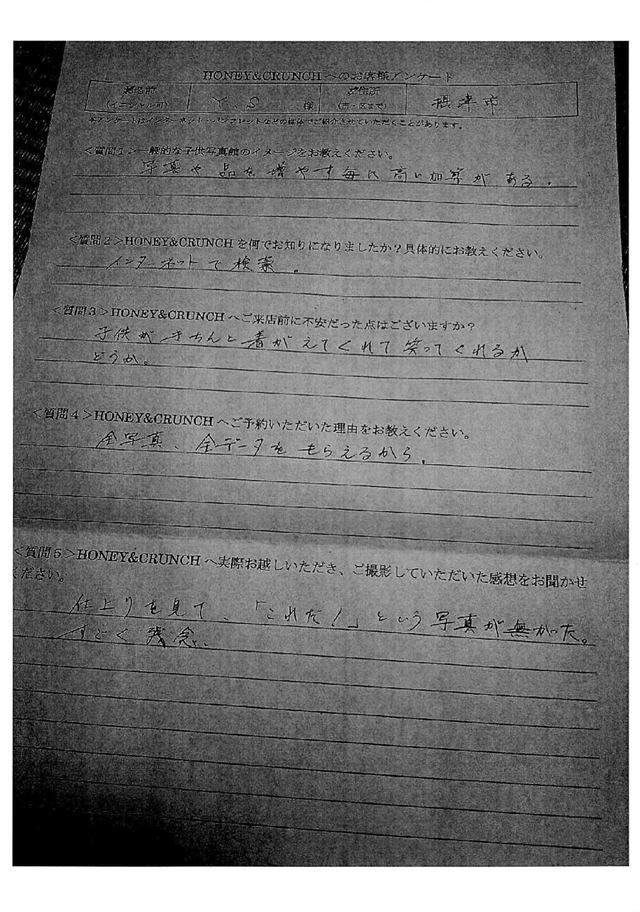 HONEY&CRUNCHへのお客様アンケート
お名前
(イニシャル可)
Y.S 様
ご住所
(市・区まで)
摂津市
※アンケートはインターネット・パンフレットなどの媒体でご紹介させていただくことがあります。
<質問1>一般的な子供写真館のイメージをお教えください。
写真や品を増やす毎に高い加算がある。
<質問2>HONEY&CRUNCHを何でお知りになりましたか?具体的にお教えください。
インターネットで検索。
<質問3>HONEY&CRUNCHへご来店前に不安だった点はございますか?
子供がきちんと着がえてくれて笑ってくれるか
どうか。
<質問4>HONEY&CRUNCHへご予約いただいた理由をお教えください。
全写真、全データをもらえるから。
<質問5>HONEY&CRUNCHへ実際お越しいただき、ご撮影していただいた感想をお聞かせ
ください。
仕上りを見て、「これだ!」という写真が無かった。
すごく残念。